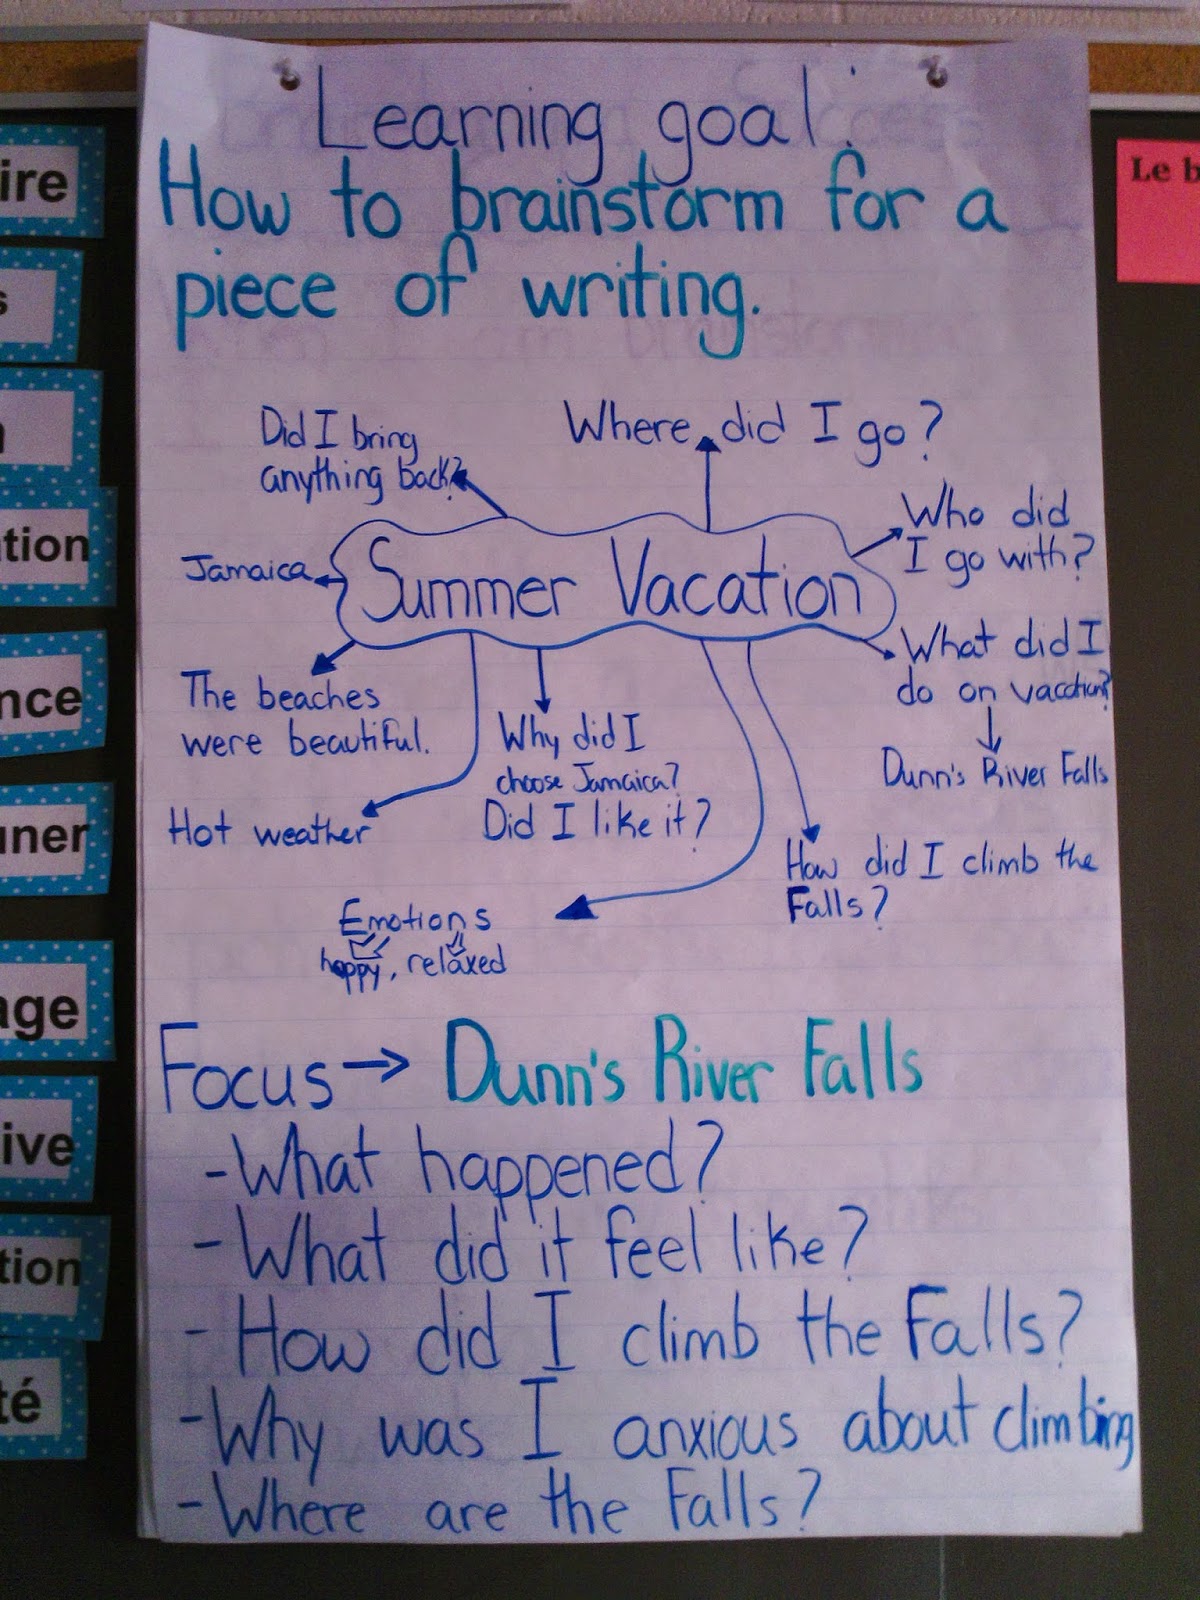 Learning goal:
How to brainstorm for a
piece of writing.
Did I bring
anything back?
Where did I go?
Who did
I go with?
Jamaica
Summer Vacation
What did I
do on vacation?
Dunn's River Falls
The beaches
were beautiful.
Why did I
choose Jamaica?
Did I like it?
Hot weather
How did I climb the
Falls?
Emotions
happy, relaxed
Focus → Dunn's River Falls
- What happened?
- What did it feel like?
- How did I climb the Falls?
- Why was I anxious about climbing
- Where are the Falls?
ire
s
tion
nce
uner
age
ive
tion
té
Le b